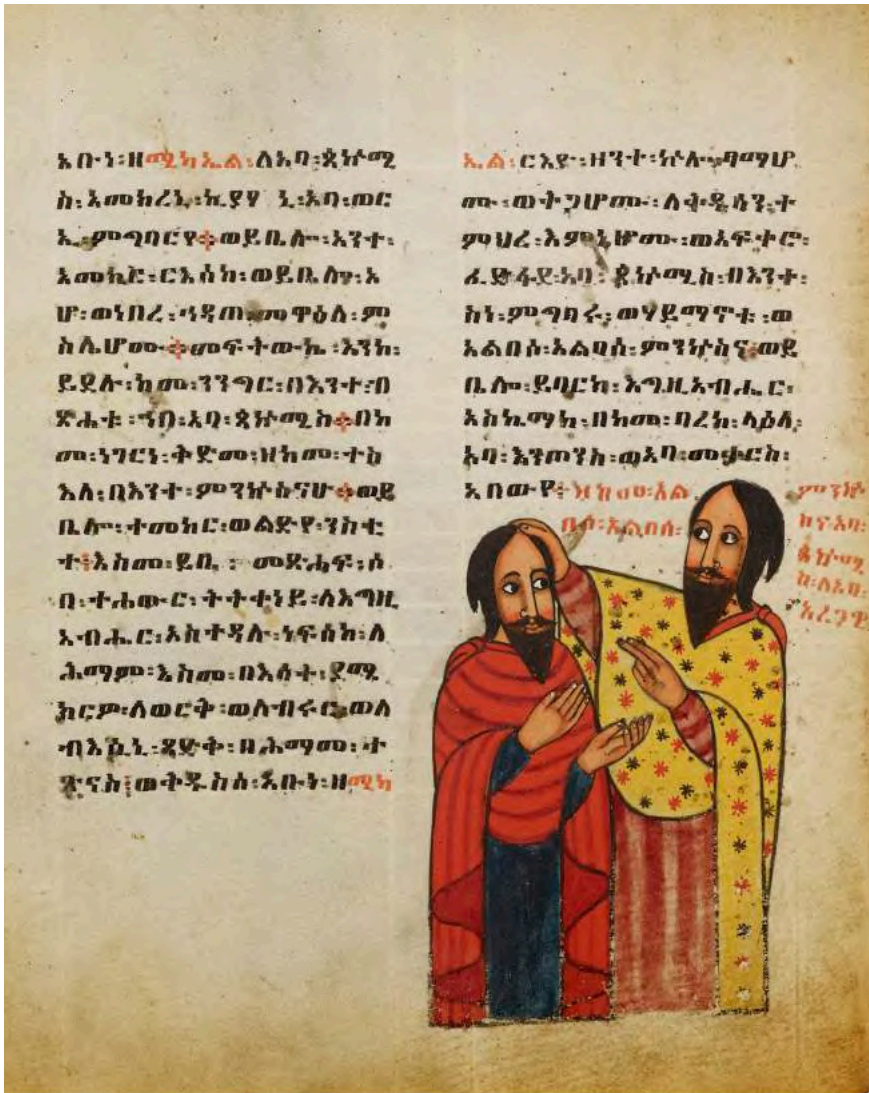 አቡነ፡ዘሚካኤል፡ለአባ፡ጳኵሚ
ስ፡አመክረኒ፡ኪያሃ ኒ፡አባ፡ወር
ኢ፡ምግባርየ፨ወይቤሎ፡አንተ፡
አመክር፡ርእሰከ፡ወይቤሎ፡እ
ሆ፡ወነበረ፡ኅዳጠ፡መዋዕለ፡ም
ስሌሆሙ፨መፍትው፡ኬ፡እንከ፡
ይደሉ፡ከመ፡ንንግር፡በእንተ፡ብ
ጽሐቱ፡ኀበ፡አባ፡ጳኵሚስ፨በከ
መ፡ነገርነ፡ቅድመ፡ዘከመ፡ተስ
እለ፡በእንተ፡ምንኵስናሁ፨ወይ
ቤሎ፡ተመከር፡ወልድየ፡ንስቲ
ተ፤እስመ፡ይቤ፡ መጽሐፍ፡ሶ
በ፡ተሐውር፡ትትተነይ፡ለእግዚ
አብሔር፡አስተዳሉ፡ነፍሰከ፡ለ
ሕማም፡እስመ፡በእሳት፡ያሜ
ክርዎ፡ለወርቅ፡ወለብሩር፡ወለ
ብእሲኒ፡ጻድቅ፡በሕማመ፡ተ
ጽናስ፤ወቅዱስሰ፡አቡነ፡ዘሚካ
ኤል፡ርእዮ፡ዘንተ፡ኵሎ፡ጻማሆ
ሙ፡ወትጋሆሙ፡ለቅዱሳን፡ተ
ምህረ፡እምኔሆሙ፡ወአፍቀሮ፡
ፈድፋደ፡አባ፡ጳኵሚስ፡በእንተ፡
ስነ፡ምግባሩ፡ወሃይማኖቱ፡ወ
አልበሶ፡አልባሰ፡ምንኵስና፡ወይ
ቤሎ፡ይባርክ፡እግዚአብሔር፡
አስኬማከ፡በከመ፡ባረከ፡ላዕለ፡
አባ፡እንጦንስ፡ወአባ፡መቃርስ፡
አበውየ፡ዘከመ፡አል
በሶ፡አልበሰ፡
ምንኵ
ስና፡አባ፡
ጳኵሚ
ስ፡ለአባ፡
አረጋዊ